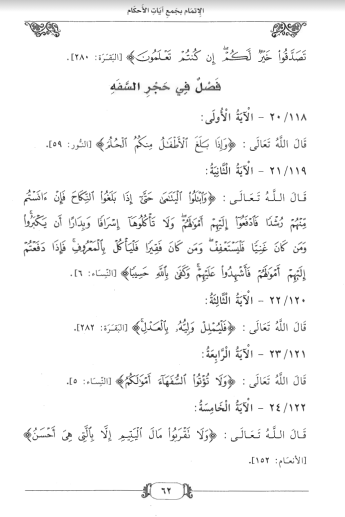 الإتمام بجمع آيات الأحكام
تَصَدَّقُوا خَيْرٌ لَّكُمْ إِن كُنتُمْ تَعْلَمُونَ﴾ [البَقَرَة: ٢٨٠].
فَصْلٌ فِي حَجْرِ السَّفَهِ
٢٠/١١٨ - الآيَةُ الْأُولَى:
قَالَ اللَّهُ تَعَالَى: ﴿وَإِذَا بَلَغَ الْأَطْفَالُ مِنكُمُ الْحُلُمَ﴾ [النُّور: ٥٩].
٢١/١١٩ - الآيَةُ الثَّانِيَةُ:
قَالَ اللَّهُ تَعَالَى: ﴿وَابْتَلُوا الْيَتَامَى حَتَّى إِذَا بَلَغُوا النِّكَاحَ فَإِنْ آنَسْتُم
مِّنْهُمْ رُشْدًا فَادْفَعُوا إِلَيْهِمْ أَمْوَالَهُمْ وَلَا تَأْكُلُوهَا إِسْرَافًا وَبِدَارًا أَن يَكْبَرُوا
وَمَن كَانَ غَنِيًّا فَلْيَسْتَعْفِفْ وَمَن كَانَ فَقِيرًا فَلْيَأْكُلْ بِالْمَعْرُوفِ فَإِذَا دَفَعْتُمْ
إِلَيْهِمْ أَمْوَالَهُمْ فَأَشْهِدُوا عَلَيْهِمْ وَكَفَى بِاللَّهِ حَسِيبًا﴾ [النِّسَاء: ٦].
٢٢/١٢٠ - الآيَةُ الثَّالِثَةُ:
قَالَ اللَّهُ تَعَالَى: ﴿فَلْيُمْلِلْ وَلِيُّهُ بِالْعَدْلِ﴾ [البَقَرَة: ٢٨٢].
٢٣/١٢١ - الآيَةُ الرَّابِعَةُ:
قَالَ اللَّهُ تَعَالَى: ﴿وَلَا تُؤْتُوا السُّفَهَاءَ أَمْوَالَكُمُ﴾ [النِّسَاء: ٥].
٢٤/١٢٢ - الآيَةُ الْخَامِسَةُ:
قَالَ اللَّهُ تَعَالَى: ﴿وَلَا تَقْرَبُوا مَالَ الْيَتِيمِ إِلَّا بِالَّتِي هِيَ أَحْسَنُ﴾
[الأنعَام: ١٥٢].
٦٢